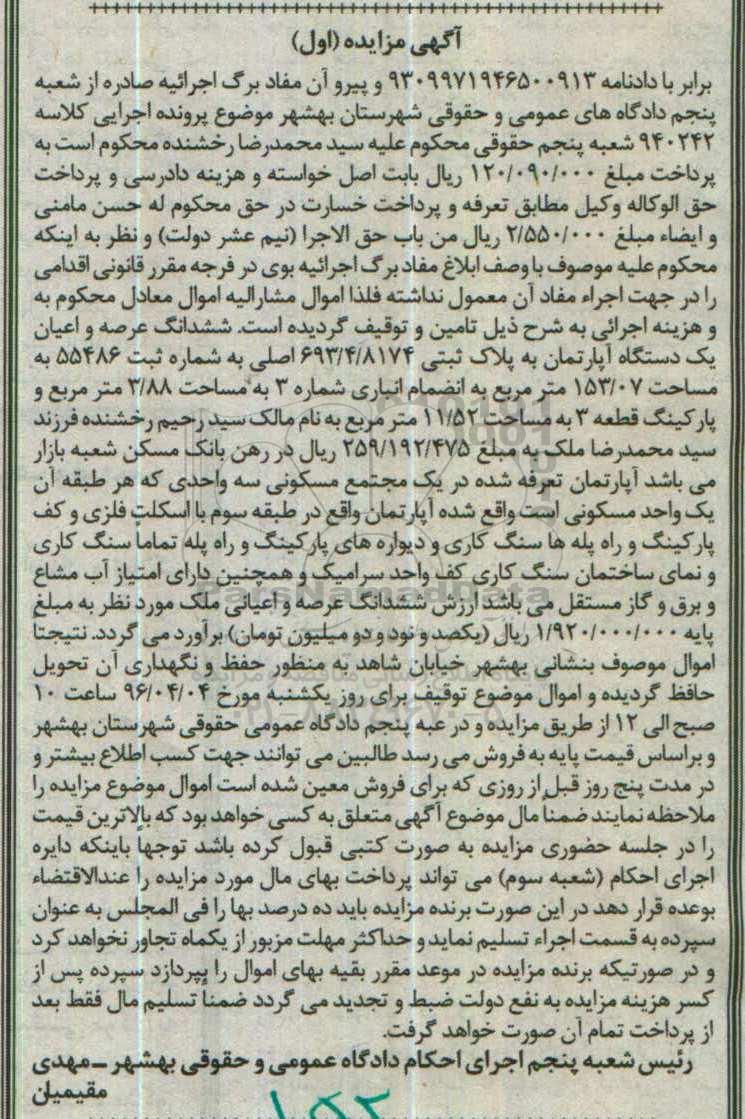 آگهی مزایده (اول)
برابر با دادنامه ۹۳۰۹۹۷۱۹۴۶۵۰۰۹۱۳ و پیرو آن مفاد برگ اجرائیه صادره از شعبه
پنجم دادگاه های عمومی و حقوقی شهرستان بهشهر موضوع پرونده اجرایی کلاسه
۹۴۰۲۴۲ شعبه پنجم حقوقی محکوم علیه سید محمدرضا رخشنده محکوم است به
پرداخت مبلغ ۱۲۰/۰۹۰/۰۰۰ ریال بابت اصل خواسته و هزینه دادرسی و پرداخت
حق الوکاله وکیل مطابق تعرفه و پرداخت خسارت در حق محکوم له حسن مامنی
و ایضاء مبلغ ۲/۵۵۰/۰۰۰ ریال من باب حق الاجرا (نیم عشر دولت) و نظر به اینکه
محکوم علیه موصوف با وصف ابلاغ مفاد برگ اجرائیه بوی در فرجه مقرر قانونی اقدامی
را در جهت اجراء مفاد آن معمول نداشته فلذا اموال مشارالیه اموال معادل محکوم به
و هزینه اجرائی به شرح ذیل تامین و توقیف گردیده است. ششدانگ عرصه و اعیان
یک دستگاه آپارتمان به پلاک ثبتی ۶۹۳/۴/۸۱۷۴ اصلی به شماره ثبت ۵۵۴۸۶ به
مساحت ۱۵۳/۰۷ متر مربع به انضمام انباری شماره ۳ به مساحت ۳/۸۸ متر مربع و
پارکینگ قطعه ۳ به مساحت ۱۱/۵۲ متر مربع به نام مالک سید رحیم رخشنده فرزند
سید محمدرضا ملک به مبلغ ۲۵۹/۱۹۲/۴۷۵ ریال در رهن بانک مسکن شعبه بازار
می باشد آپارتمان تعرفه شده در یک مجتمع مسکونی سه واحدی که هر طبقه آن
یک واحد مسکونی است واقع شده آپارتمان واقع در طبقه سوم با اسکلت فلزی و کف
پارکینگ و راه پله ها سنگ کاری و دیواره های پارکینگ و راه پله تماما سنگ کاری
و نمای ساختمان سنگ کاری کف واحد سرامیک و همچنین دارای امتیاز آب مشاع
و برق و گاز مستقل می باشد ارزش ششدانگ عرصه و اعیانی ملک مورد نظر به مبلغ
پایه ۱/۹۲۰/۰۰۰/۰۰۰ ریال (یکصد و نود و دو میلیون تومان) برآورد می گردد. نتیجتا
اموال موصوف بنشانی بهشهر خیابان شاهد به منظور حفظ و نگهداری آن تحویل
حافظ گردیده و اموال موضوع توقیف برای روز یکشنبه مورخ ۹۶/۰۴/۰۴ ساعت ۱۰
صبح الی ۱۲ از طریق مزایده و در عبه پنجم دادگاه عمومی حقوقی شهرستان بهشهر
و براساس قیمت پایه به فروش می رسد طالبین می توانند جهت کسب اطلاع بیشتر و
در مدت پنج روز قبل از روزی که برای فروش معین شده است اموال موضوع مزایده را
ملاحظه نمایند ضمناً مال موضوع آگهی متعلق به کسی خواهد بود که بالاترین قیمت
را در جلسه حضوری مزایده به صورت کتبی قبول کرده باشد توجهاً باینکه دایره
اجرای احکام (شعبه سوم) می تواند پرداخت بهای مال مورد مزایده را عندالاقتضاء
بوعده قرار دهد در این صورت برنده مزایده باید ده درصد بها را فی المجلس به عنوان
سپرده به قسمت اجراء تسلیم نماید و حداکثر مهلت مزبور از یکماه تجاوز نخواهد کرد
و در صورتیکه برنده مزایده در موعد مقرر بقیه بهای اموال را بپردازد سپرده پس از
کسر هزینه مزایده به نفع دولت ضبط و تجدید می گردد ضمناً تسلیم مال فقط بعد
از پرداخت تمام آن صورت خواهد گرفت.
رئیس شعبه پنجم اجرای احکام دادگاه عمومی و حقوقی بهشهر ــ مهدی
مقیمیان